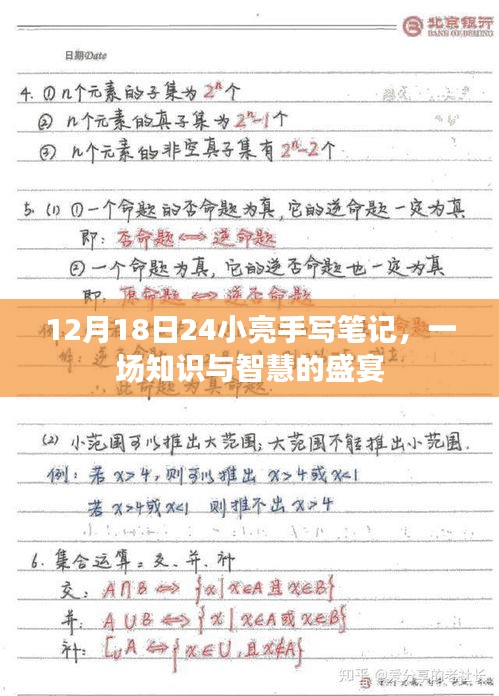 北京银行
BANK OF BEIJING
日期Date
4. ① n个元素的子集为2ⁿ个
② n个元素的真子集为2ⁿ-1个
③ n个元素的非空真子集有2ⁿ-2个
5. (1) ① 一个命题的否命题为真,它的逆命题一定为真
即: 否命题⟺逆命题
② 一个命题为真,它的逆否命题也一定为真
即: 原命题⟺逆否命题
12月18日24小亮手写笔记,一
场知识与智慧的盛宴
(2) 小范围可以推出大范围;大范围不能推出小范围.
例: 若 x>4, 则可以推出 x>4或x<1
若 x>4或x<1 则推不出 x>4
6. 集合运算: 交、并、补
交: A∩B ⟺ {x|x∈A 且 x∈B}
并: A∪B ⟺ {x|x∈A 或 x∈B}
补: ∁ᵤA ⟺ {x∈U, 且x∉A}
知乎 @爱分享的老社长